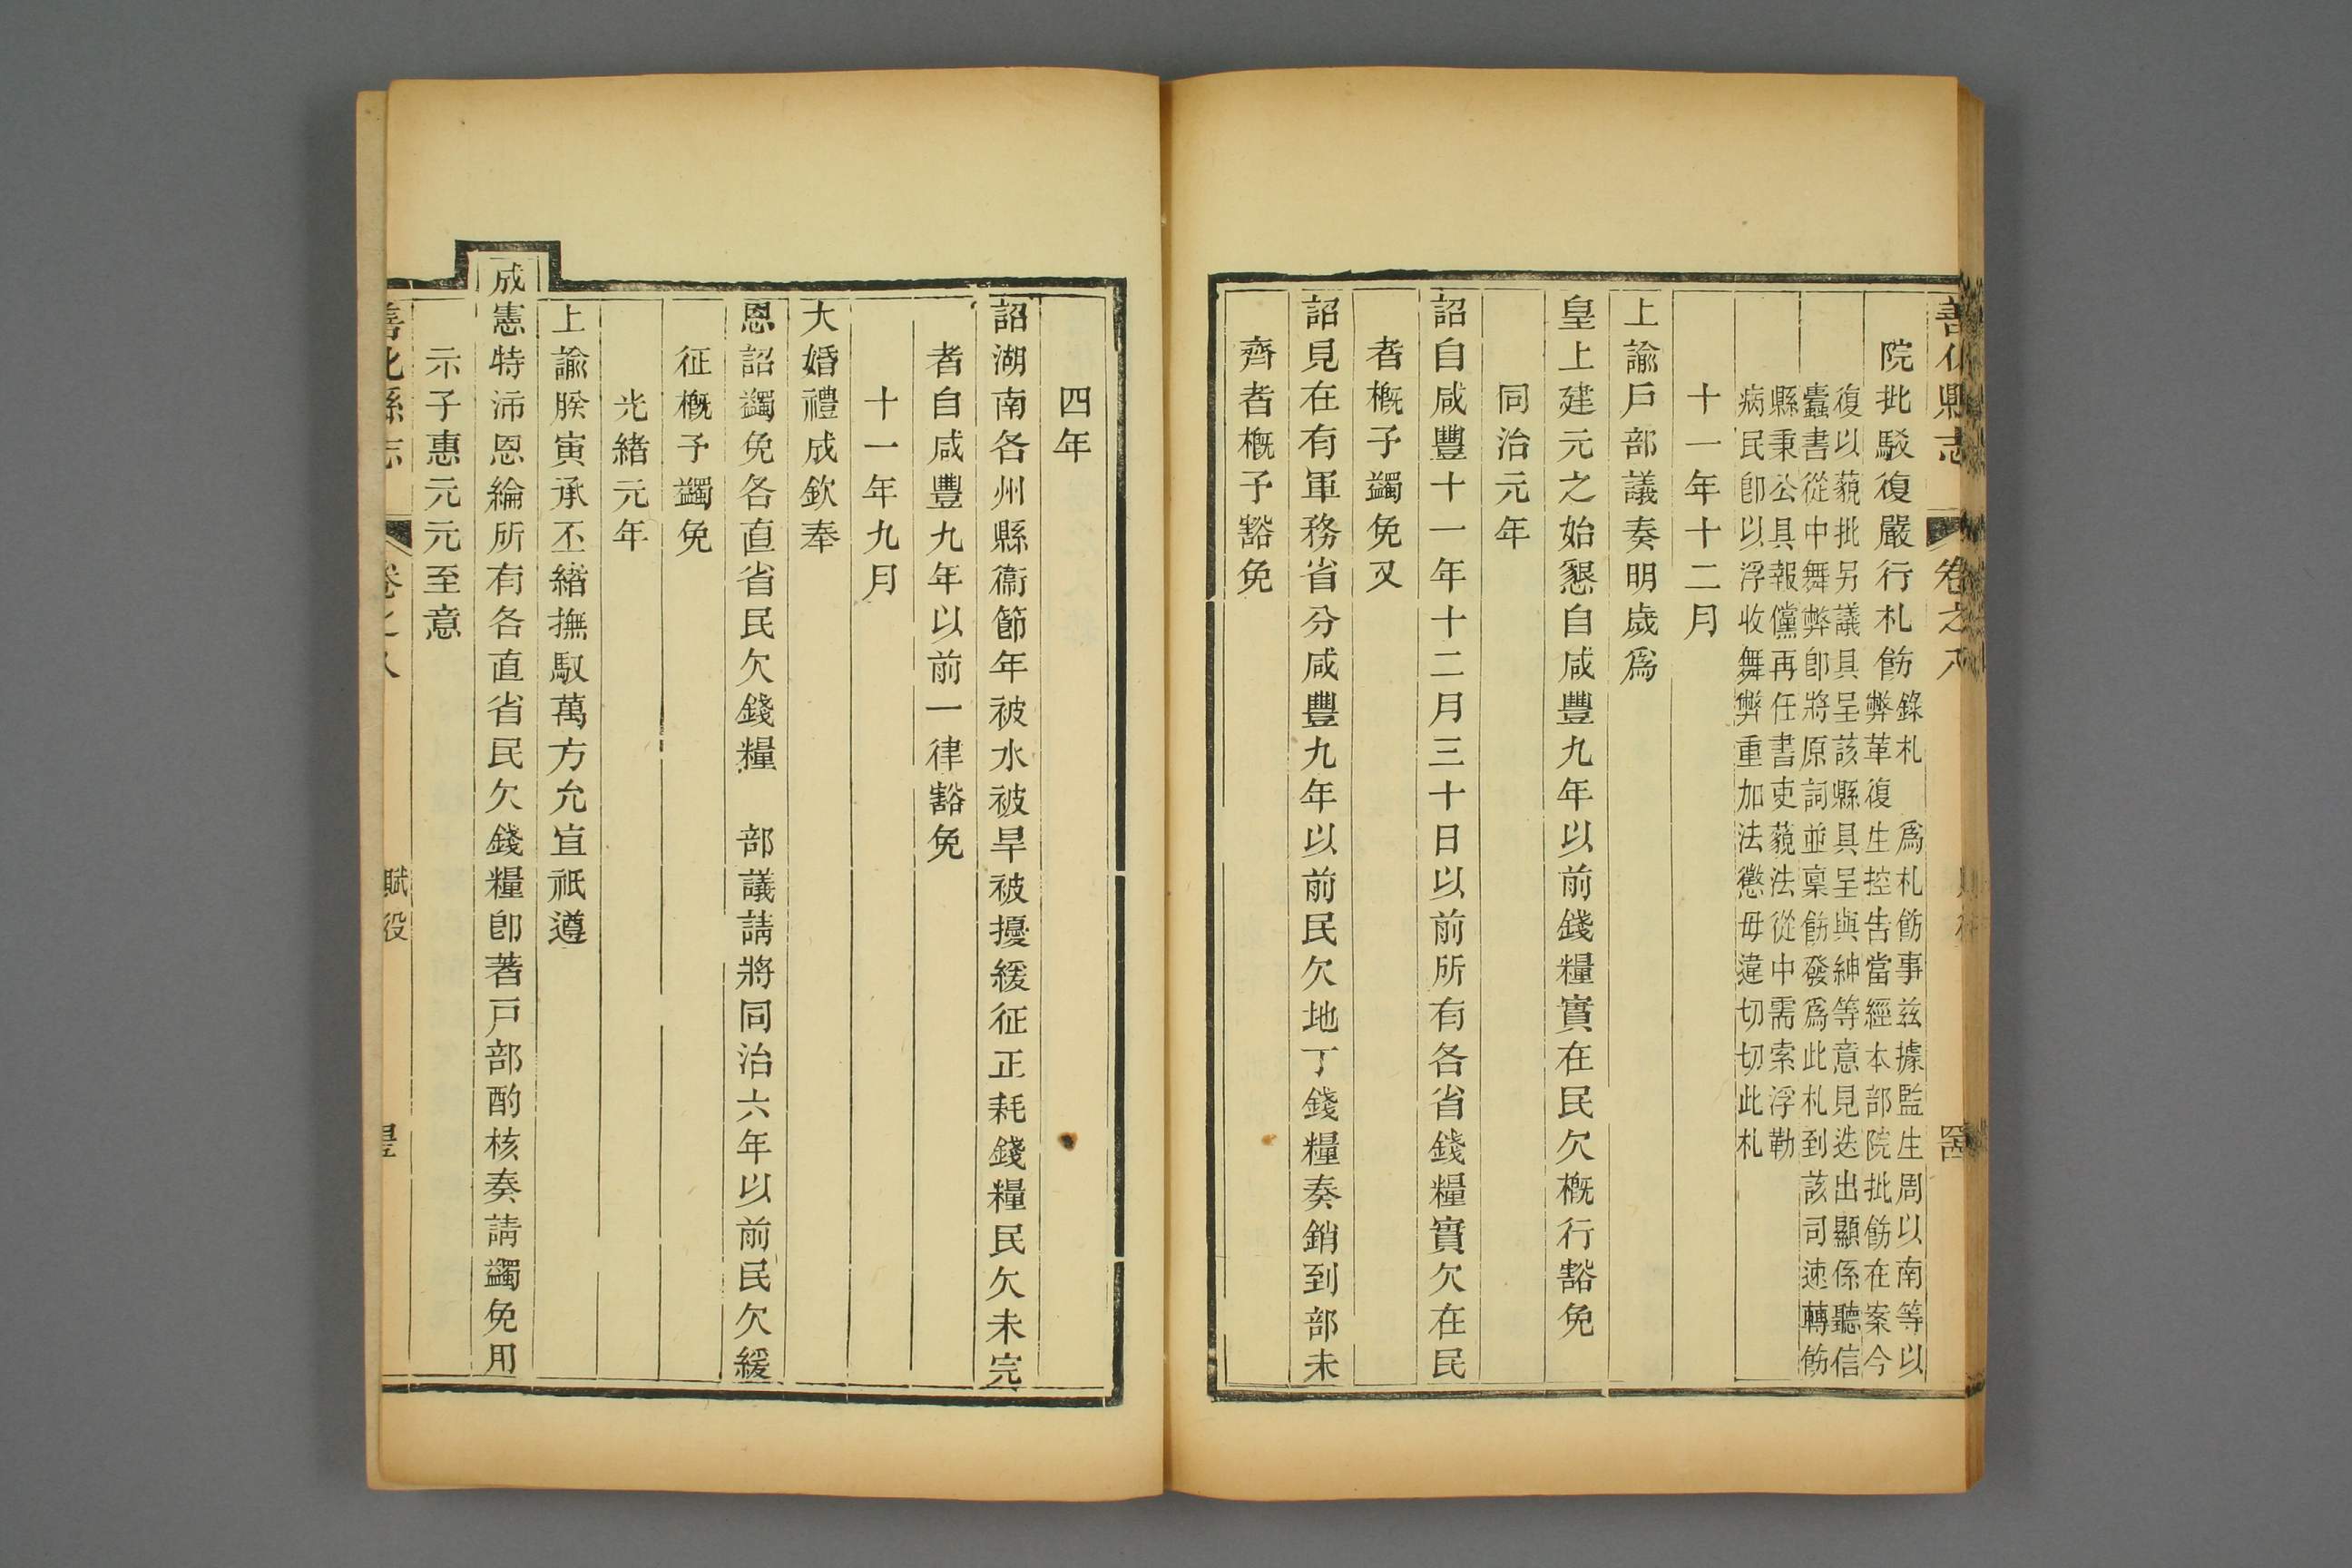 善化縣志 卷之八
院批駁復嚴行札飭錄札 爲札飭事兹據監生周以南等以
弊革復生控告當經本部院批飭在案今
復以藐批另議具呈該縣具呈與紳等意見迭出顯係聽信
蠹書從中舞弊卽將原詞並稟飭發爲此札到該司速轉飭
縣秉公具報儻再任書吏藐法從中需索浮勒
病民卽以浮收舞弊重加法懲毋違切切此札
十一年十二月
上諭戶部議奏明歲爲
皇上建元之始懇自咸豐九年以前錢糧實在民欠槪行豁免
同治元年
詔自咸豐十一年十二月三十日以前所有各省錢糧實欠在民
者槪予蠲免又
詔見在有軍務省分咸豐九年以前民欠地丁錢糧奏銷到部未
齊者槪予豁免
四年
詔湖南各州縣衞節年被水被旱被擾緩征正耗錢糧民欠未完
者自咸豐九年以前一律豁免
十一年九月
大婚禮成欽奉
恩詔蠲免各直省民欠錢糧 部議請將同治六年以前民欠緩
征槪予蠲免
光緒元年
上諭朕寅承丕緒撫馭萬方允宜祇遵
成憲特沛恩綸所有各直省民欠錢糧卽著戶部酌核奏請蠲免用
示子惠元元至意
善化縣志 卷之八 賦役